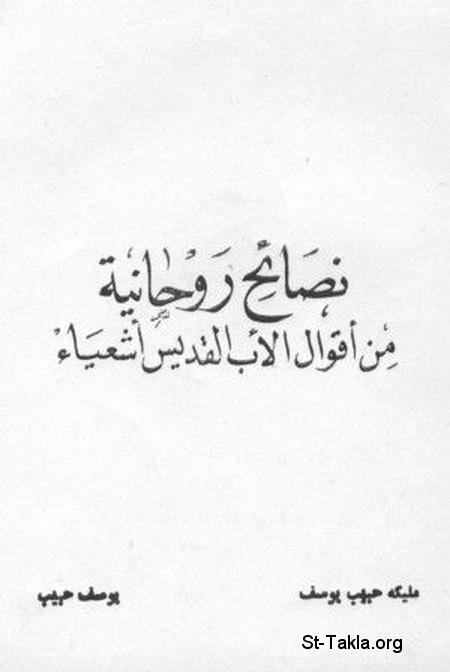 نصَائح رَوْحَانية
مِن أقوال الأب القديسِ أشعيَاء
مليكه حبيب يوسف يوسف حبيب
St-Takla.org